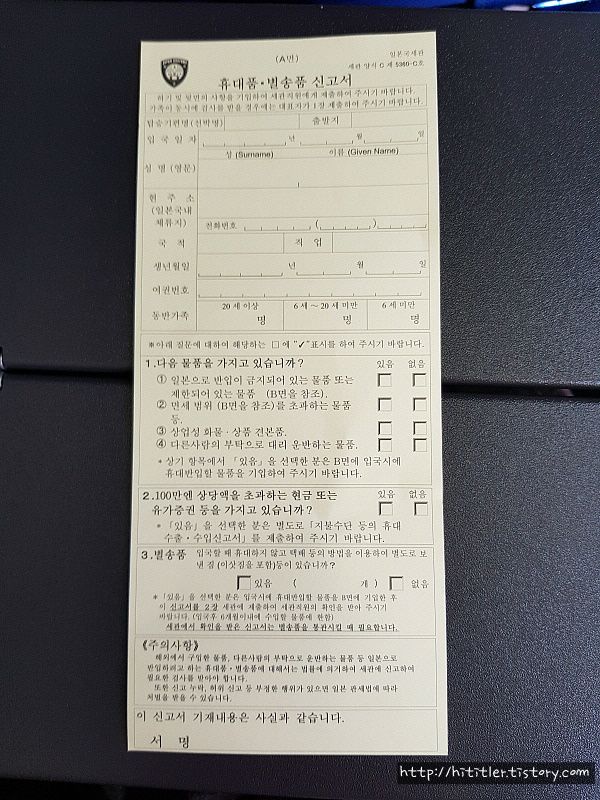 (A면)
일본국세관
세관 양식 C 제 5360-C호
휴대품·별송품 신고서
하기 및 뒷면의 사항을 기입하여 세관직원에게 제출하여 주시기 바랍니다.
가족이 동시에 검사를 받을 경우에는 대표자가 1장 제출하여 주시기 바랍니다.
탑승기편명(선박명) 출발지
입국일자 년 월 일
성 (Surname) 이름 (Given Name)
성 명 (영문)
현 주 소
(일본국내
체류지)
전화번호 ( )
국 적 직 업
생년월일 년 월 일
여권번호
동반가족 20세이상 6세~20세미만 6세미만
명 명 명
※아래 질문에 대하여 해당하는 □에 "✓"표시를 하여 주시기 바랍니다.
1.다음 물품을 가지고 있습니까? 있음 없음
① 일본으로 반입이 금지되어 있는 물품 또는
제한되어 있는 물품 (B면을 참조).
② 면세 범위 (B면을 참조)를 초과하는 물품
등.
③ 상업성 화물·상품 견본품.
④ 다른사람의 부탁으로 대리 운반하는 물품.
*상기 항목에서 「있음」을 선택한 분은 B면에 입국시에
휴대반입할 물품을 기입하여 주시기 바랍니다.
2.100만엔 상당액을 초과하는 현금 또는 있음 없음
유가증권 등을 가지고 있습니까?
*「있음」을 선택한 분은 별도로 「지불수단 등의 휴대
수출·수입신고서」를 제출하여 주시기 바랍니다.
3.별송품 입국할 때 휴대하지 않고 택배 등의 방법을 이용하여 별도로 보
낸 짐 (이삿짐을 포함)등이 있습니까?
있음 ( 개) 없음
*「있음」을 선택한 분은 입국시에 휴대반입할 물품을 B면에 기입한 후
이 신고서를 2장 세관에 제출하여 세관직원의 확인을 받아 주시기
바랍니다. (입국후 6개월이내에 수입할 물품에 한함)
세관에서 확인을 받은 신고서는 별송품을 통관시킬 때 필요합니다.
《주의사항》
해외에서 구입한 물품, 다른사람의 부탁으로 운반하는 물품 등 일본으로
반입하려고 하는 휴대품·별송품에 대해서는 법률에 의거하여 세관에 신고하여
필요한 검사를 받아야 합니다.
또한 신고 누락, 허위 신고 등 부정한 행위가 있으면 일본 관세법에 따라
처벌을 받을 수 있습니다.
이 신고서 기재내용은 사실과 같습니다.
서 명
http://hititler.tistory.com